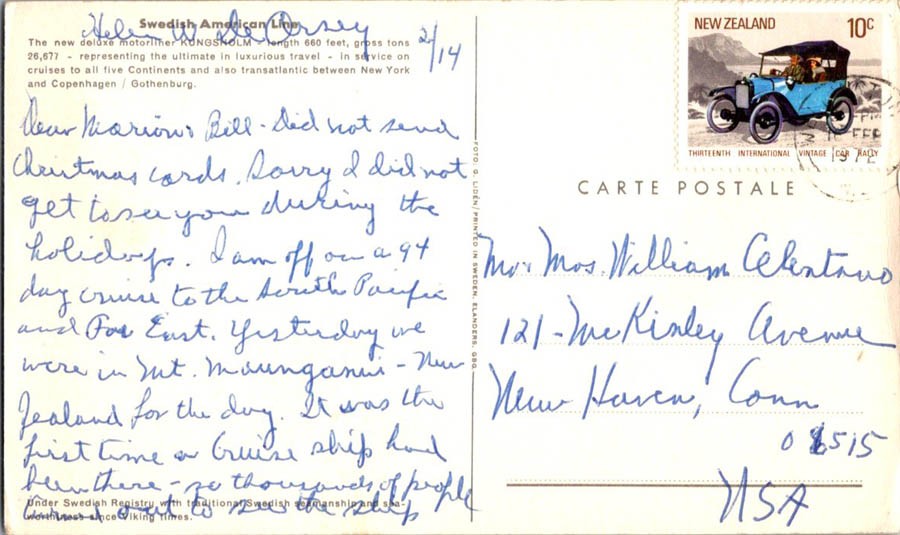 Helen W. De Orsey 2/14
Swedish American Line
The new deluxe motorliner KUNGSHOLM - length 660 feet, gross tons
26,677 - representing the ultimate in luxurious travel - in service on
cruises to all five Continents and also transatlantic between New York
and Copenhagen / Gothenburg.
Dear Marion & Bill - Did not send
Christmas cards. Sorry I did not
get to see you during the
holidays. I am off on a 94
day cruise to the South Pacific
and Far East. Yesterday we
were in Mt. Maunganui - New
Zealand for the day. It was the
first time a Cruise ship had
been there - so thousands of people
turned out to see the ship
Under Swedish Registry with traditional Swedish seamanship and sea-
worthiness since Viking times.
FOTO: G. LIDEN/PRINTED IN SWEDEN, ELANGERS, GBG.
NEW ZEALAND 10c
THIRTEENTH INTERNATIONAL VINTAGE CAR RALLY
FEB
1972
CARTE POSTALE
Mr. Mrs. William Celentano
121 - McKinley Avenue
New Haven, Conn
06515
USA